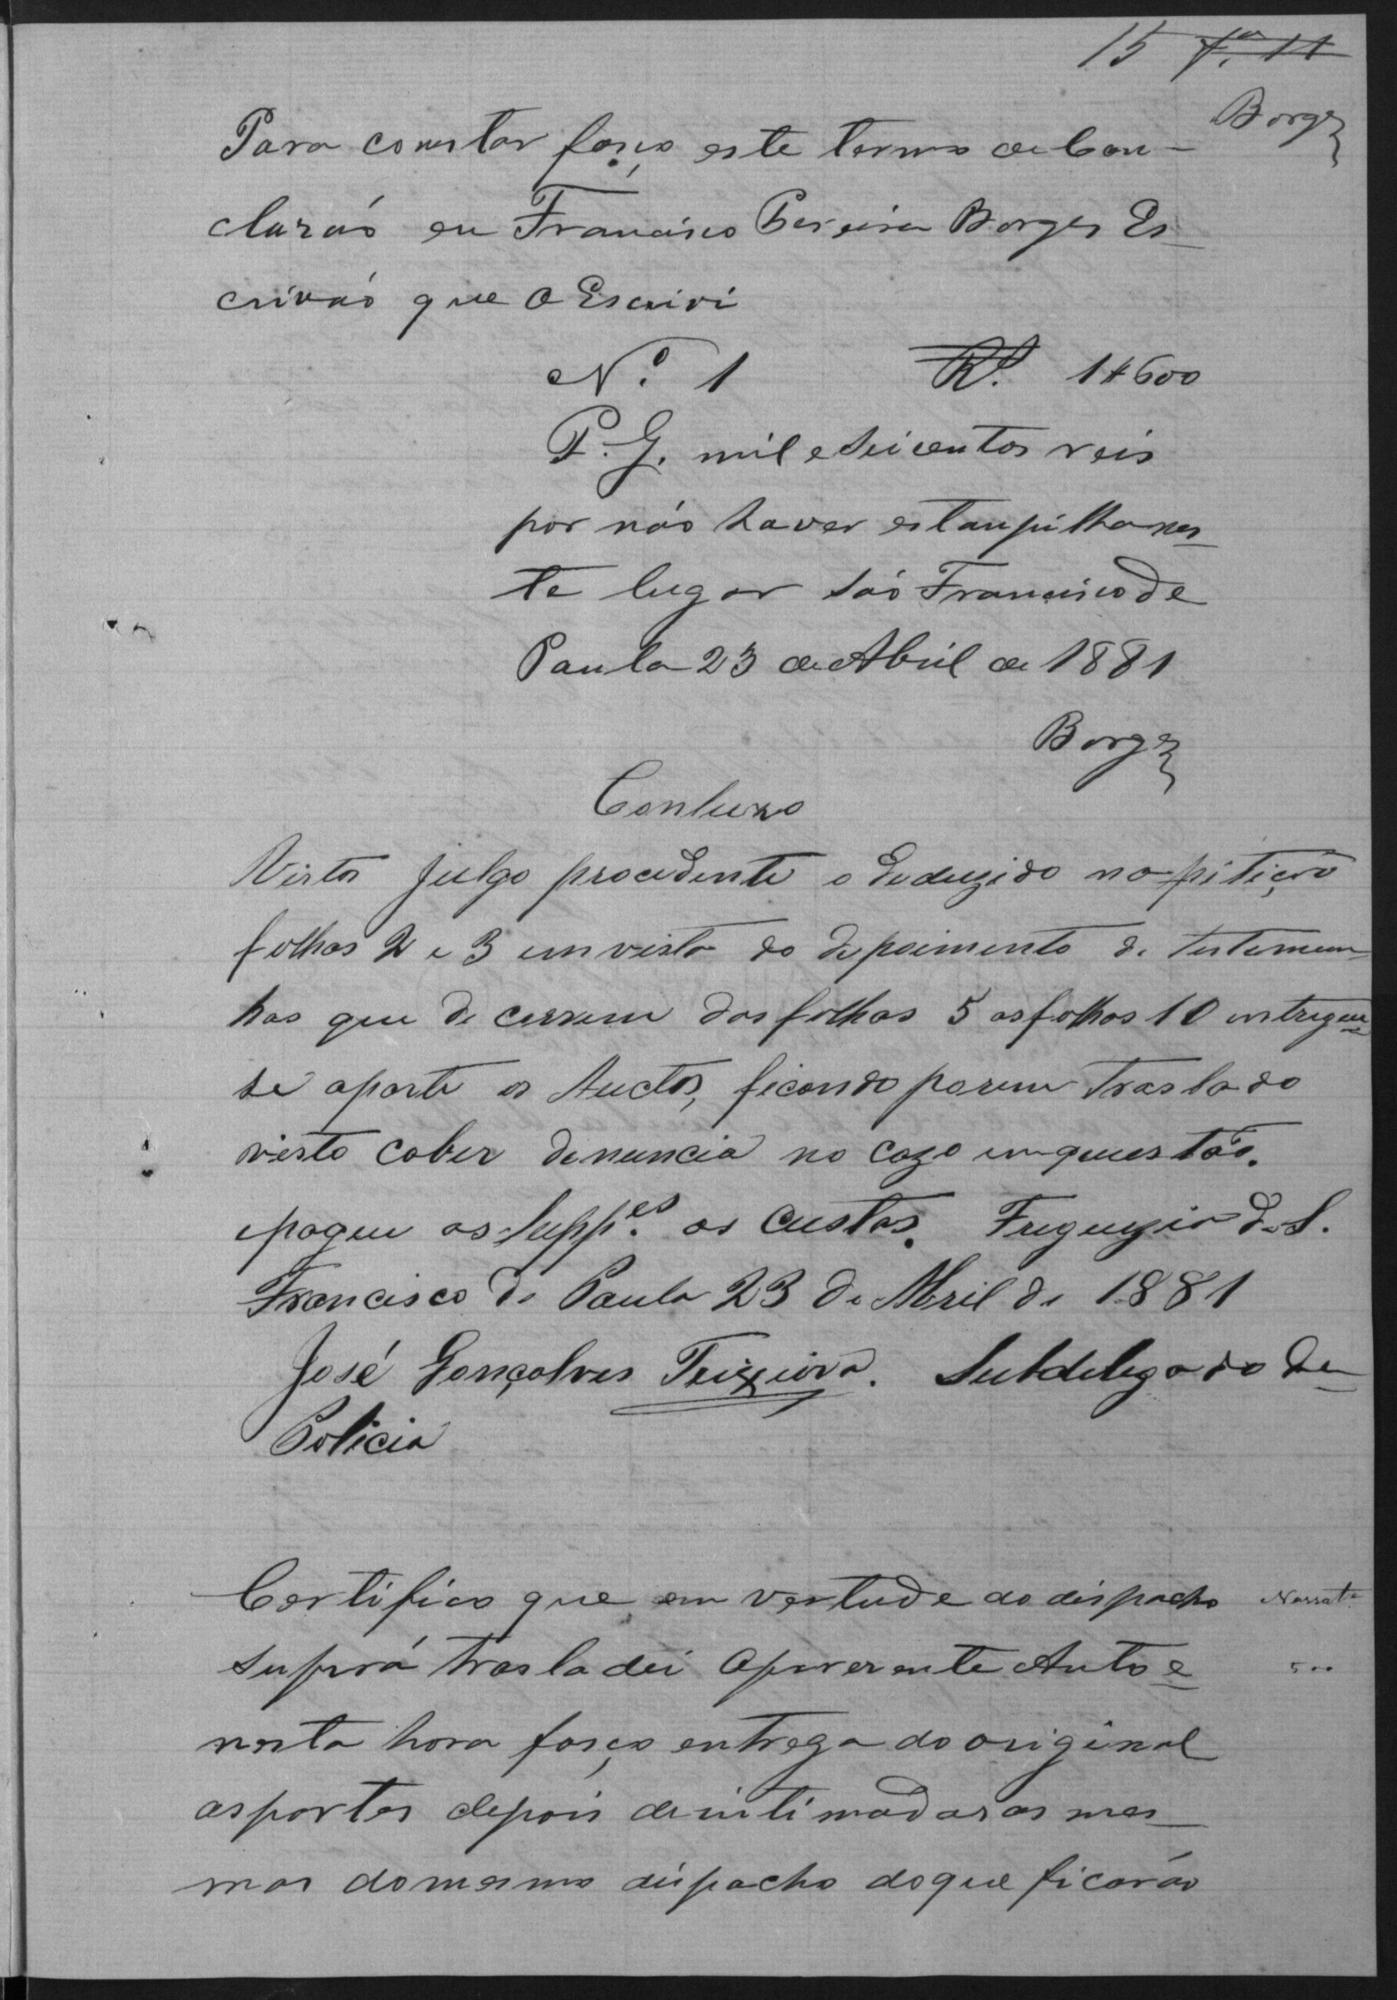 15 fª. 11
Borges
Para constar faço este termo de Con-
cluzaó eu Francisco Pereira Borges Es-
crivaó que o Escrivi
Nº. 1 Rº. 1#600
P. G. mil e seicentos reis
por não haver estanpilha nes-
te lugar São Francisco de
Paula 23 de Abril de 1881
Borges
Concluzo
Visto julgo procedente o deduzido na pitição
folhas 2 e 3 em vista do depoimento de testemun-
has que decorrem das folhas 5 as folhas 10 entregue-
se aparte os Auctos, ficando porem traslado
visto caber denuncia no cazo em questão.
epague os Suppes. as custas. Freguezia de S.
Francisco de Paula 23 de Abril de 1881
José Gonçalves Teixeira. Subdelegado de
Policia
Certifico que em vertude do dispacho
suprá trasladei o prezente Auto e
nesta hora faço entrega do original
as partes depois de intimadas as mes-
mas do mesmo dispacho do que ficarão